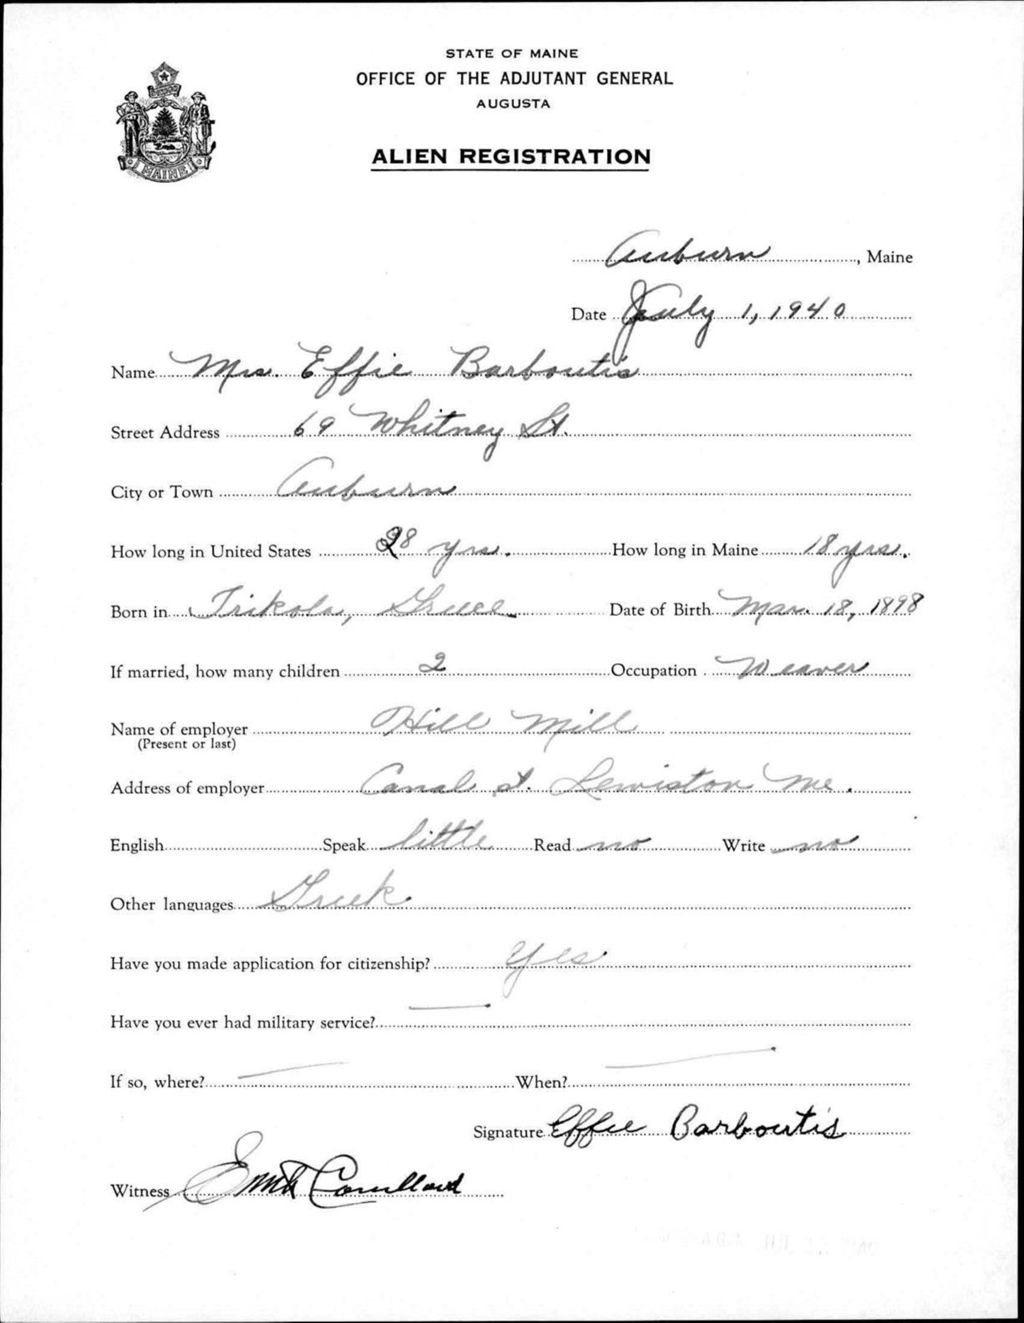 STATE OF MAINE
OFFICE OF THE ADJUTANT GENERAL
AUGUSTA
ALIEN REGISTRATION
MAINE
Auburn, Maine
Date July 1, 1940
Name Mrs. Effie Barboutis
Street Address 69 Whitney St.
City or Town Auburn
How long in United States 28 yrs. How long in Maine 18 yrs.
Born in Trikola, Greece Date of Birth Mar. 18, 1898
If married, how many children 2 Occupation Weaver
Name of employer Hill Mill
(Present or last)
Address of employer Canal St. Lewiston Me.
English Speak little Read no Write no
Other languages Greek
Have you made application for citizenship? Yes
Have you ever had military service? —
If so, where? — When? —
Signature Effie Barboutis
Witness